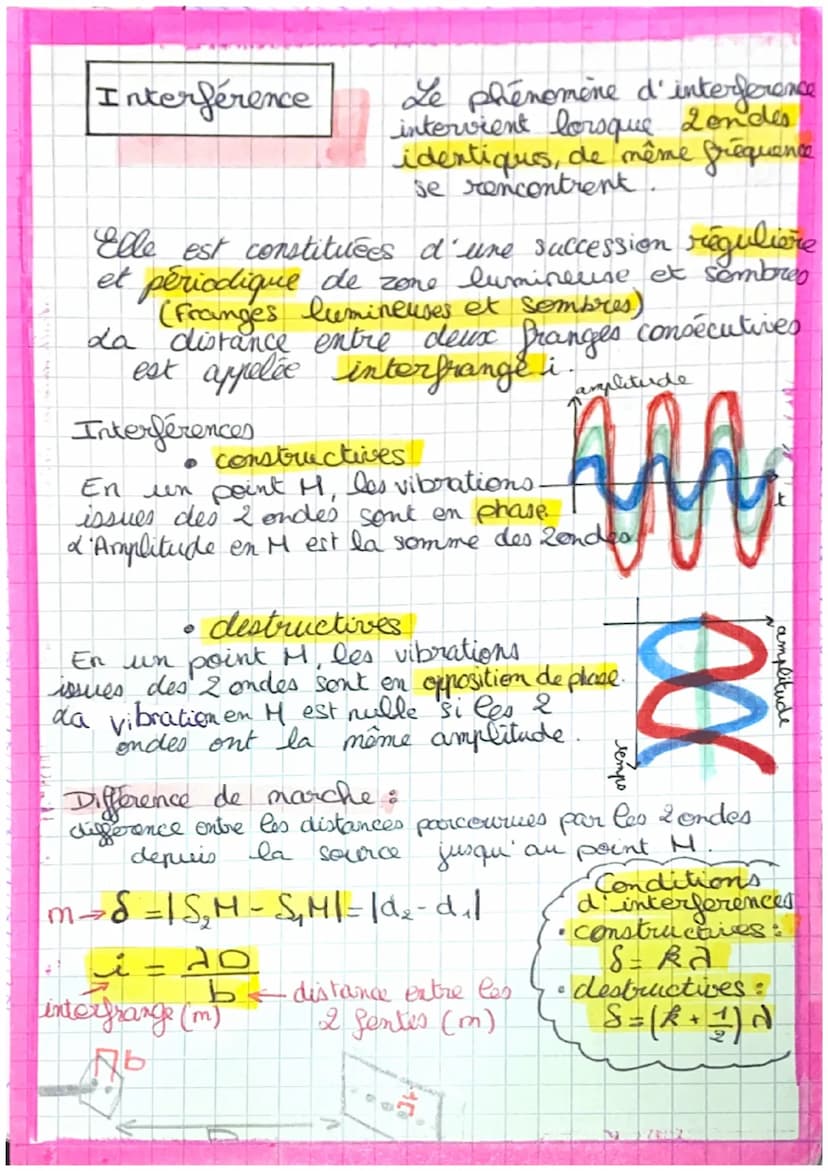 Interférence
Le phénomène d'interference
intervient lorsque 2 ondes
identiques, de même fréquence
se rencontrent.
Elle est constituées d'une succession régulière
et périodique de zone lumineuse et sombres
(Franges lumineuses et sombres)
La distance entre deux franges consécutives
est appelée interfrange i.
amplitude
Interférences
• constructives
En un point M, les vibrations
issues des 2 ondes sont en phase.
L'Amplitude en M est la somme des 2 ondes.
t
• destructives
En un point M, les vibrations
issues des 2 ondes sont en opposition de phase.
La vibration en M est nulle si les 2
ondes ont la même amplitude.
amplitude
temps
Différence de marche :
différence entre les distances parcourues par les 2 ondes
depuis la source jusqu'au point M.
m → δ = |S₂M - S₁M| = |d₂ - d₁|
i = λD / b
interfrange (m)
← distance entre les
2 fentes (m)
Conditions
d'interferences
• constructives :
δ = kλ
• destructives :
δ = (k + 1/2) λ
b
i
D